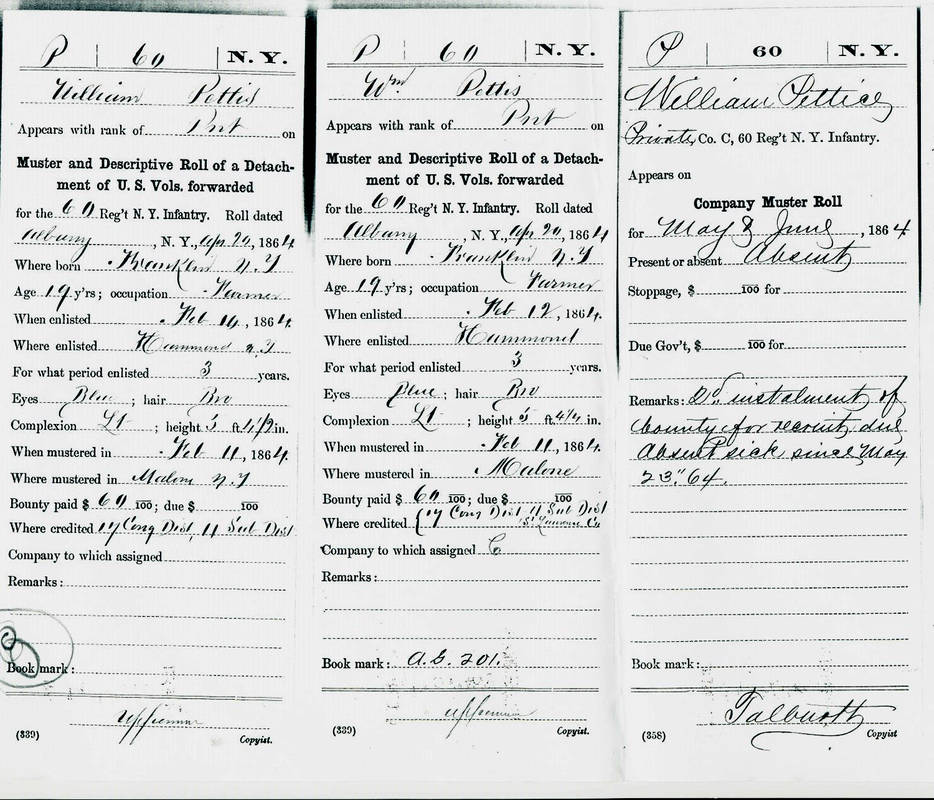 P | 60 | N. Y.
William Pettis
Appears with rank of Pvt on
Muster and Descriptive Roll of a Detach-
ment of U. S. Vols. forwarded
for the 60 Reg't N. Y. Infantry. Roll dated
Albany, N. Y., Apr 20, 1864
Where born Franklin N. Y
Age 19 y'rs; occupation Farmer
When enlisted Feb, 1864.
Where enlisted Hammond N Y
For what period enlisted 3 years.
Eyes Blue; hair Bro
Complexion Lt; height 5 ft. 4 1/2 in.
When mustered in Feb 11, 1864.
Where mustered in Malone N. Y
Bounty paid $ 60 100; due $ 100
Where credited 17 Cong Dist, 11 Sub Dist
Company to which assigned
Remarks:
Book mark:
(339) Copyist.
P | 60 | N. Y.
Wm Pettis
Appears with rank of Pvt on
Muster and Descriptive Roll of a Detach-
ment of U. S. Vols. forwarded
for the 60 Reg't N. Y. Infantry. Roll dated
Albany, N. Y., Apr 20, 1864
Where born Franklin N Y
Age 19 y'rs; occupation Farmer
When enlisted Feb 12, 1864.
Where enlisted Hammond
For what period enlisted 3 years.
Eyes Blue; hair Bro
Complexion Lt; height 5 ft. 4 1/4 in.
When mustered in Feb 11, 1864.
Where mustered in Malone
Bounty paid $ 60 100; due $ 100
Where credited 17 Cong Dist 11 Sub Dist
St Lawrence Co
Company to which assigned C
Remarks:
Book mark: A.G. 201.
(339) Copyist.
P | 60 | N. Y.
William Pettice,
Private, Co. C, 60 Reg't N. Y. Infantry.
Appears on
Company Muster Roll
for May & June, 1864
Present or absent Absent
Stoppage, $ 100 for
Due Gov't, $ 100 for
Remarks: 2d, instalment of
bounty for recruit due
Absent sick since May
23" 64.
Book mark:
Talburtt
(358) Copyist